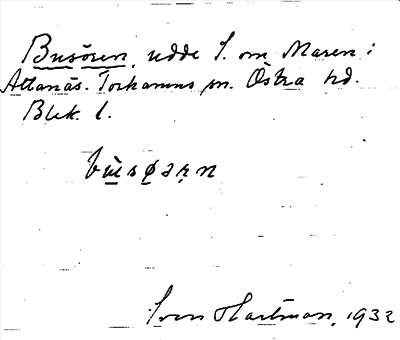 Busören, udde S. om Maren i
Attanäs. Torhamns sn. Östra hd.
Blek. l.
bùsøaṛn
Sven Hartman, 1932